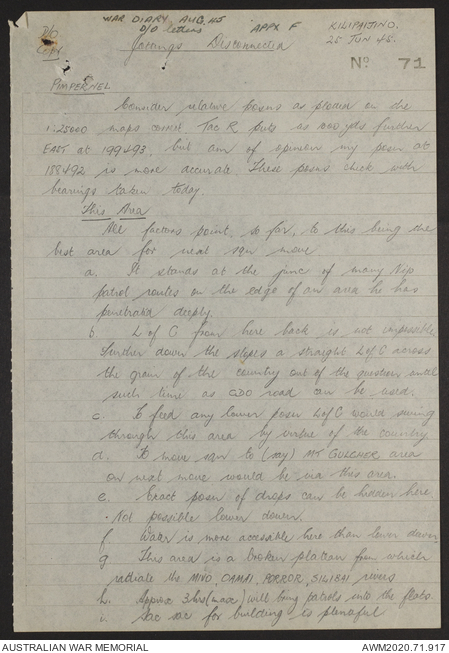 D/O
Copy
WAR DIARY AUG. 45
D/O letters
APPX F
KILIPAIJINO.
25 JUN 45.
Jottings Disconnected
No 71
PIMPERNEL
Consider relative posns as plotted on the
1:25000 maps correct. Tac R puts us 1000 yds further
EAST at 199493, but am of opinion my posn at
188492 is more accurate. These posns check with
bearings taken today.
This Area
All factors point, so far, to this being the
best area for next sqn move
a. It stands at the junc of many Nip
patrol routes on the edge of an area he has
penetrated deeply.
b. L of C from here back is not impossible
Further down the slopes a straight L of C across
the grain of the country out of the question until
such time as CDO road can be used.
c. To feed any lower posn L of C would swing
through this area by virtue of the country
d. To move sqn to (say) MT GULCHER area
on next move would be via this area.
e. Exact posn of drops can be hidden here
. Not possible lower down.
f. Water is more accessible here than lower down
g This area is a broken plateau from which
radiate the MIVO, OAMAI, PORROR, SILIBAI rivers
h. Approx 3 hrs (max) will bring patrols into the flats.
i. Sac sac for building is plentiful
AUSTRALIAN WAR MEMORIAL
AWM2020.71.917